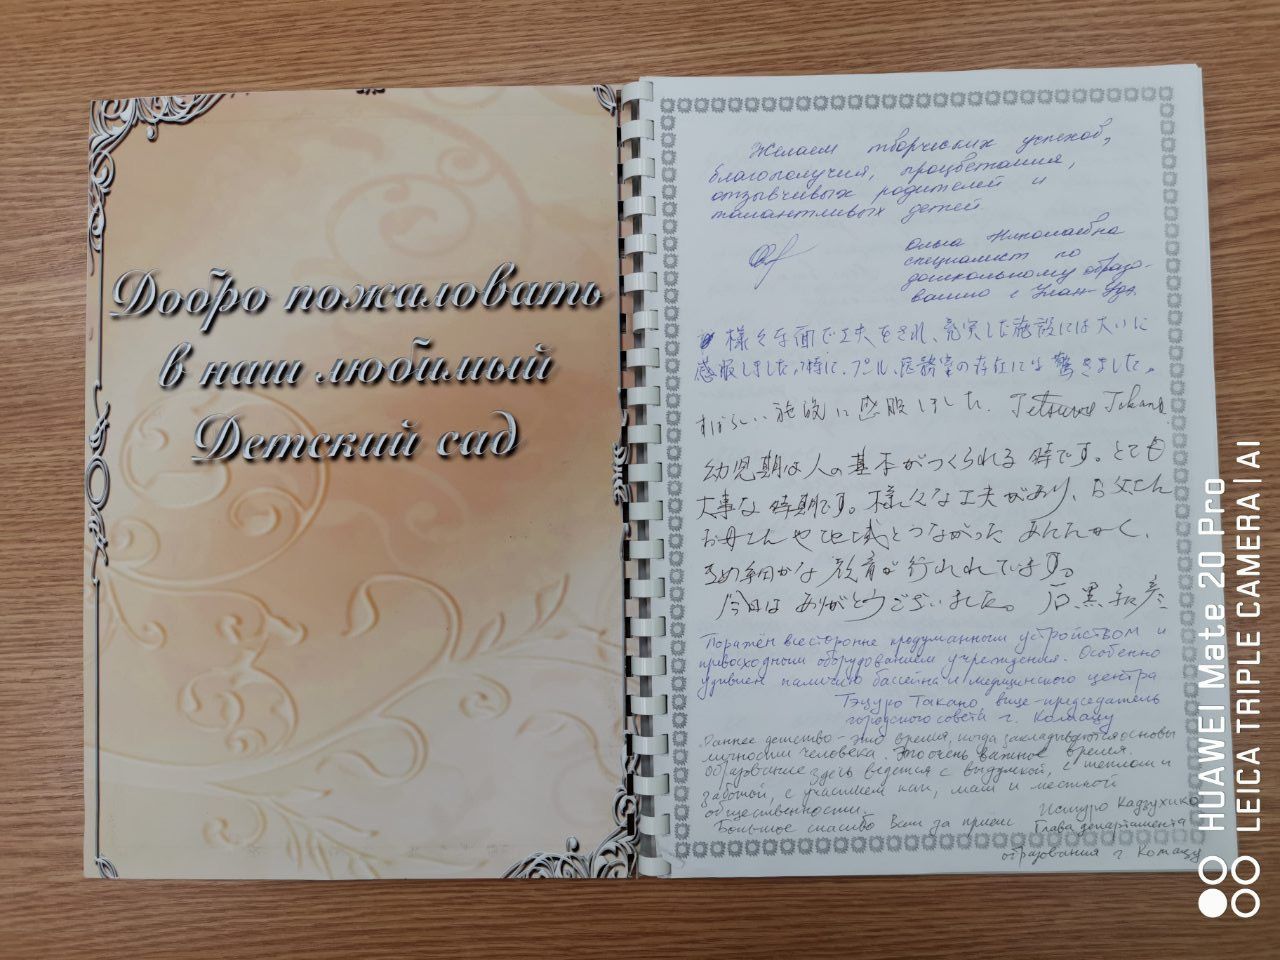 Добро пожаловать
в наш любимый
Детский сад
Желаем творческих успехов,
благополучия, процветания,
отзывчивых родителей и
талантливых детей.
Ольга Николаевна
специалист по
дошкольному образо-
ванию г Улан-Удэ.
様々な面で工夫をされ、充実した施設には大いに
感服しました。特に、プール、医務室の存在には驚きました。
すばらしい施設に感服しました. Tetsuro Takano
幼児期は人の基本がつくられる時です。とても
大事な時期です。様々な工夫があり、お父さん
お母さんや地域とつながった あたたかく、
きめ細かな教育が行われています。
今日は ありがとうございました。 石黒和彦
Поражён всесторонне продуманным устройством и
превосходным оборудованием учреждения. Особенно
удивлен наличию бассейна и медицинского центра
Тэцуро Такано, вице-председатель
городского совета г. Комацу
Раннее детство - это время, когда закладываются основы
личности человека. Это очень важное время.
Образование здесь ведется с выдумкой, с теплом и
заботой, с участием пап, мам и местной
общественности.
Большое спасибо Вам за прием Исигуро Кадзухико
Глава департамента
образования г Комацу
HUAWEI Mate 20 Pro
LEICA TRIPLE CAMERA | AI